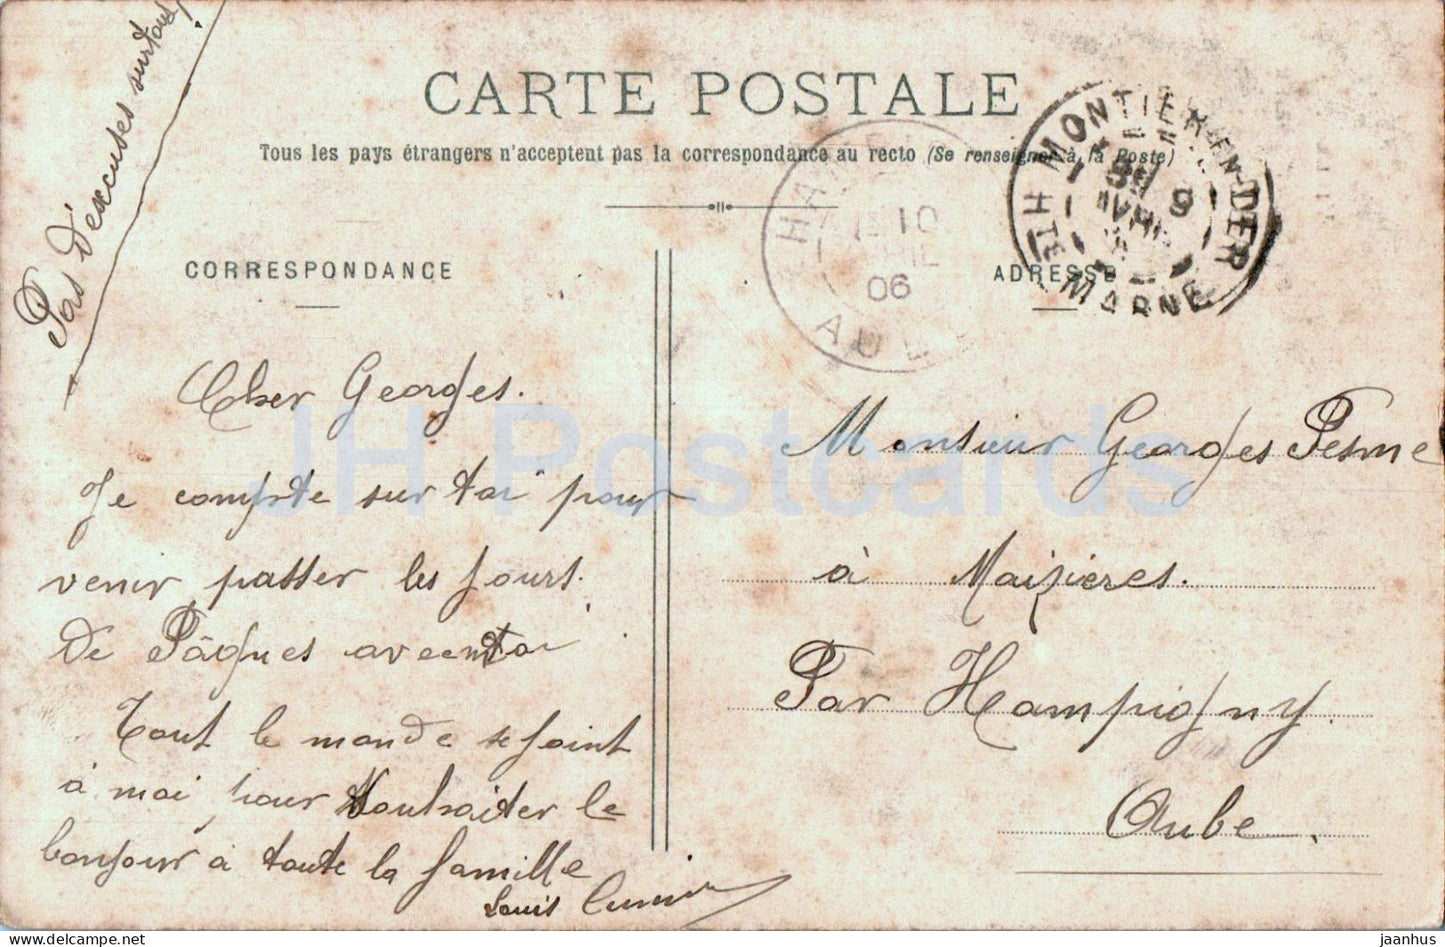 CARTE POSTALE
Tous les pays étrangers n'acceptent pas la correspondance au recto (Se renseigner à la Poste)
CORRESPONDANCE
ADRESSE
Pas d'excuses surtout
Cher Georges.
Je compte sur toi pour
venir passer les jours
de Pâques avec moi
Tout le monde se joint
à moi pour souhaiter le
bonjour à toute la famille
Louis
Monsieur Georges Pesme
à Maizières.
Par Hampigny
Aube.
MONTIER-EN-DER
HTE MARNE
9
AVRIL
10
06
AUBE
JH Postcards
www.delcampe.net
jaanhus